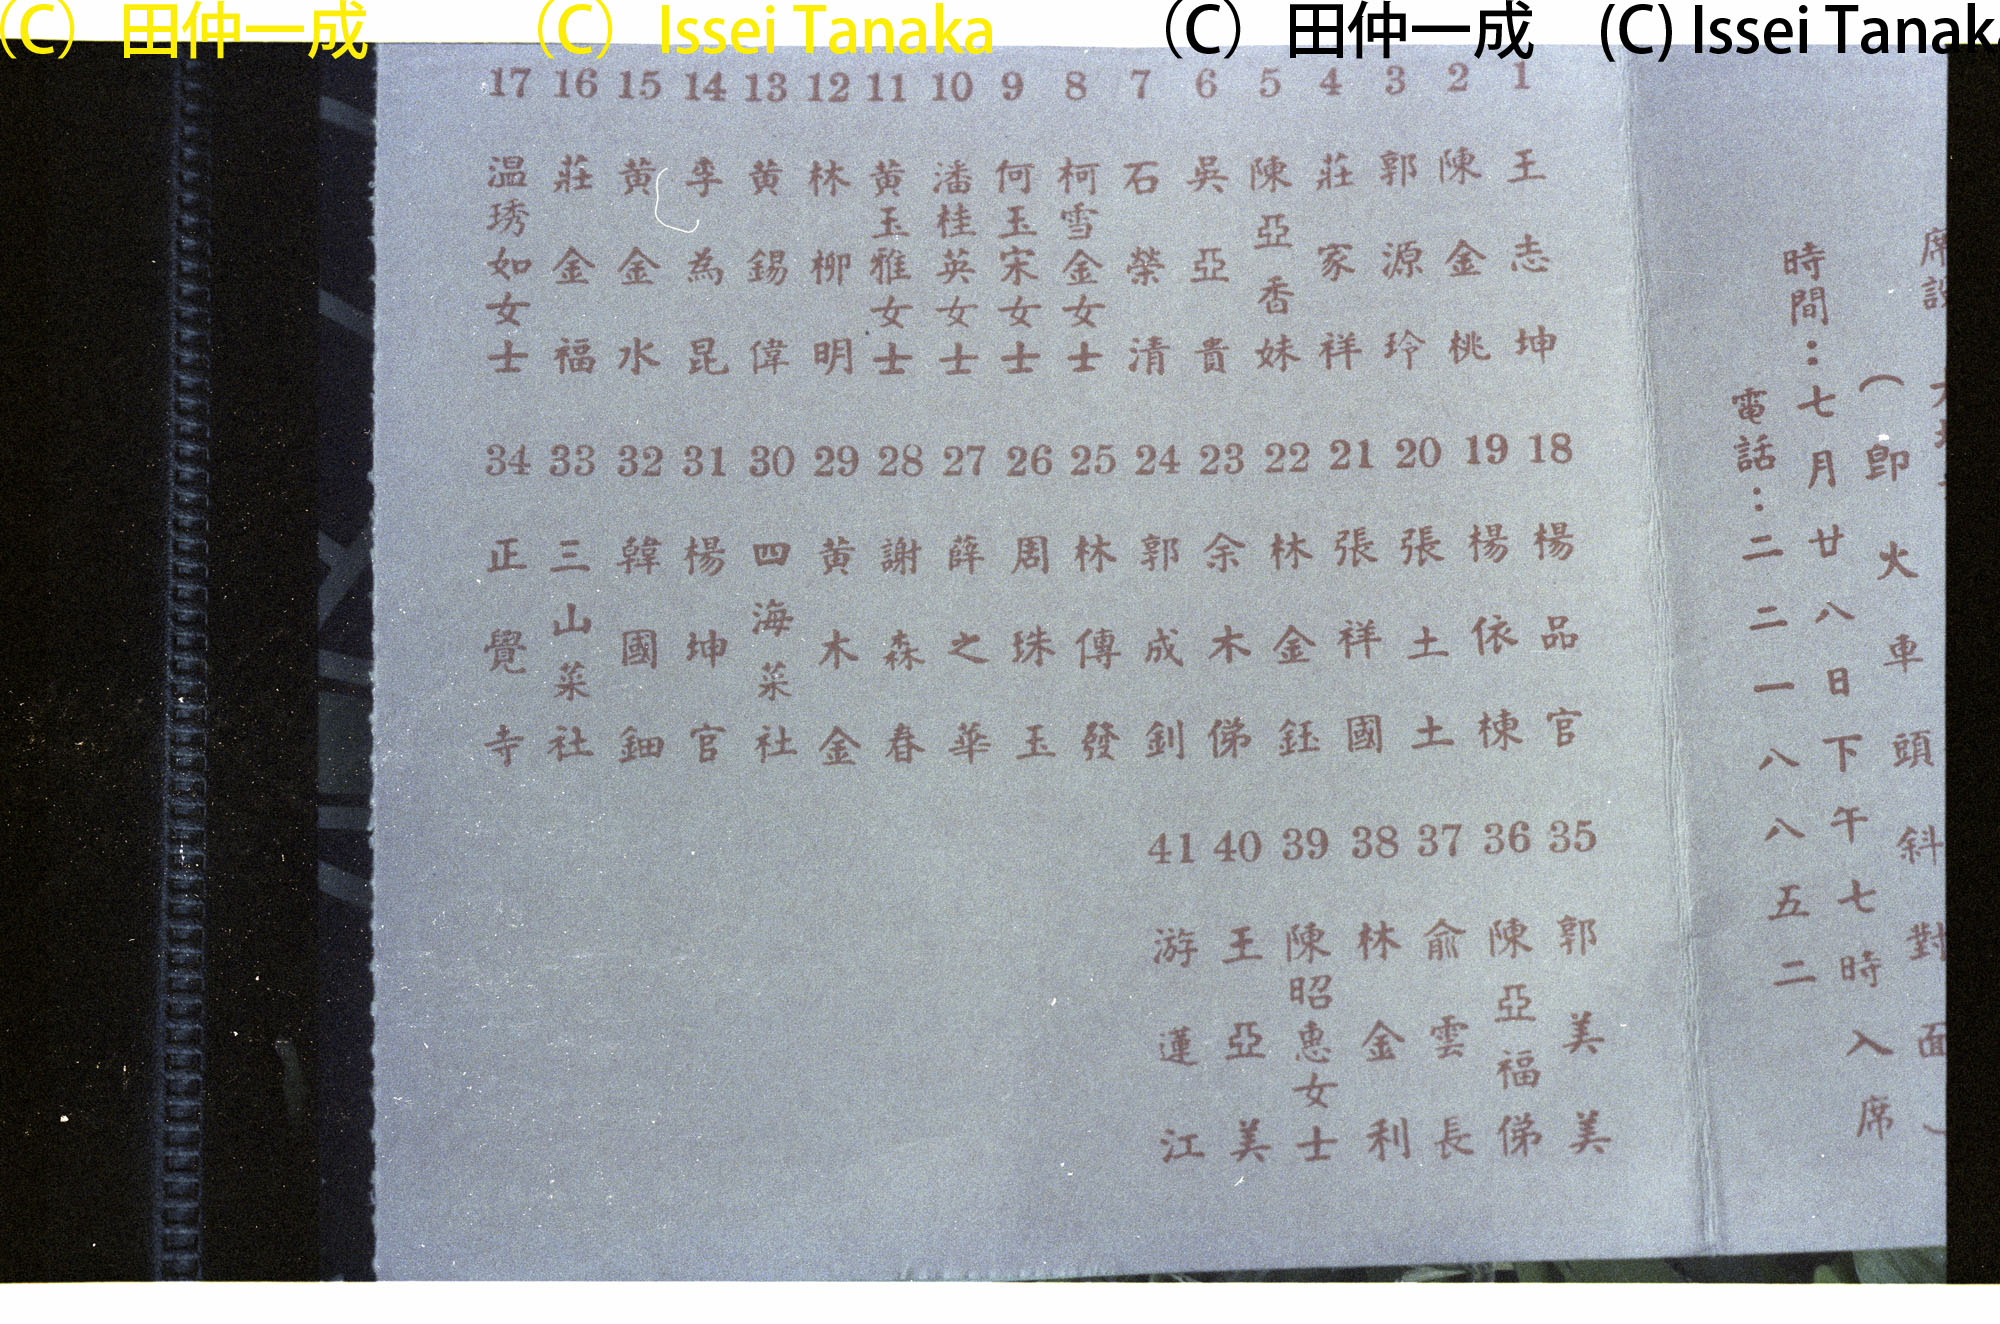 (C) 田仲一成 (C) Issei Tanaka (C) 田仲一成 (C) Issei Tanaka
席設
(即火車頭斜對面)
時間：七月廿八日下午七時入席
電話：二二一八八五二
1 王志坤
2 陳金桃
3 郭源玲
4 莊家祥
5 陳亞香妹
6 吳亞貴
7 石榮清
8 柯雪金女士
9 何玉宋女士
10 潘桂英女士
11 黃玉雅女士
12 林柳明
13 黃錫偉
14 李為昆
15 黃金水
16 莊金福
17 温琇如女士
18 楊品官
19 楊依棟
20 張土土
21 張祥國
22 林金鈺
23 余木俤
24 郭成釗
25 林傳發
26 周珠玉
27 薛之華
28 謝森春
29 黃木金
30 四海菜社
31 楊坤官
32 韓國鈿
33 三山菜社
34 正覺寺
35 郭美美
36 陳亞福俤
37 俞雲長
38 林金利
39 陳昭惠女士
40 王亞美
41 游蓮江